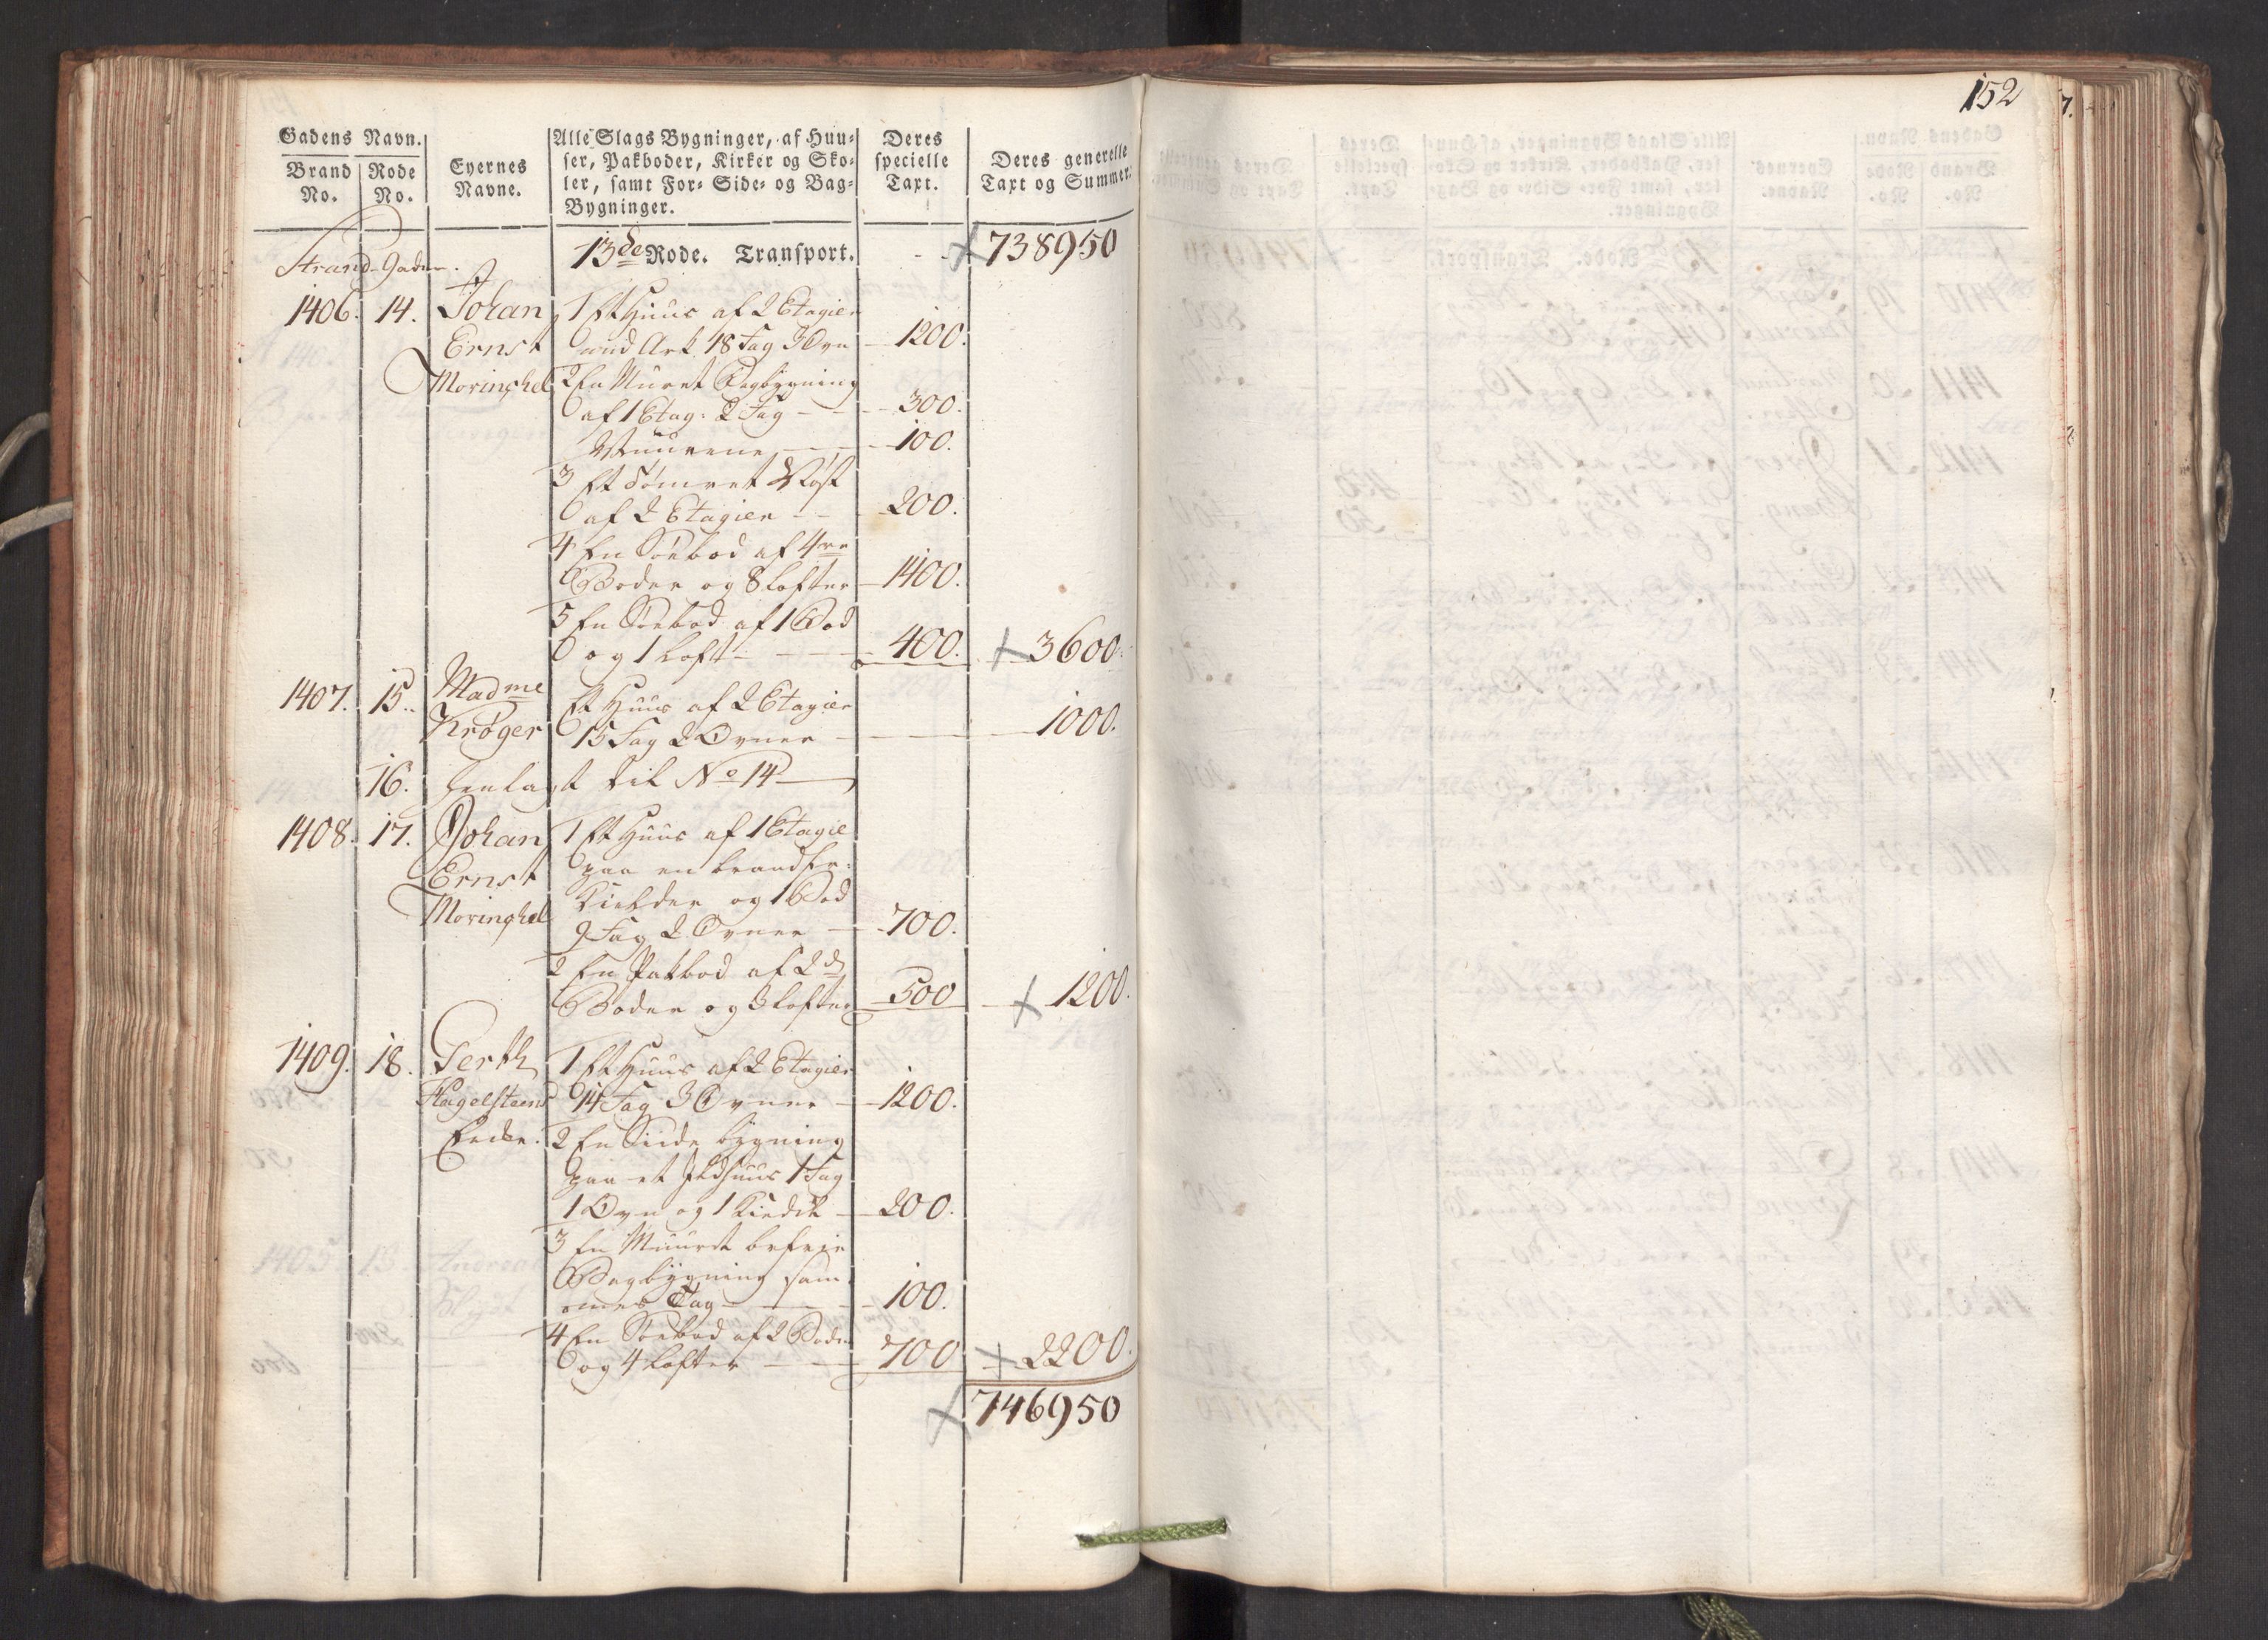 152
Gadens Navn.
Brand No.
Rode No.
Eyernes Navne.
Alle Slags Bygninger, af Huu-
ser, Pakboder, Kirker og Sko-
ler, samt For- Side- og Bag-
Bygninger.
Deres specielle Taxt.
Deres generelle Taxt og Summer.
Strand-Gaden. 13de Rode. Transport. 738950
1406. 14. Johan 1 Et Huus af 2 Etagier
Ernst med Ark 18 Fag 3 Ovn 1200.
Moringhel 2 En Muret Bagbygning
af 1 Etag: 2 Fag 300.
Muurene 100.
3 Et Tømret
af 2 Etagier 200.
4 En Søebod af 4re
Boder og 8 Lofter 1400.
5 En Søebod af 1 Bod
og 1 Loft 400. 3600.
1407. 15. Madme Et Huus af 2 Etagier
Krøger 15 Fag 2 Ovner 1000.
16. Henlagt til No 14
1408. 17. Johan 1 Et Huus af 1 Etagie
Ernst paa en brandfr:
Moringhel Kielder og 1 Bod
9 Fag 2 Ovner 700.
2 En Pakbod af 2de
Boder og 3 Lofter 500 1200.
1409. 18. Gerth 1 Et Huus af 2 Etagier
Hagelsteens 14 Fag 3 Ovner 1200.
Enke. 2 En Siide bygning
paa et Ildhuus 1 Fag
1 Ovn og 1 200.
3 En Muuret
Bagbygning sam-
mes Tag 100.
4 En Søebod af 2 Boder
og 4 Lofter 700 2200.
746950